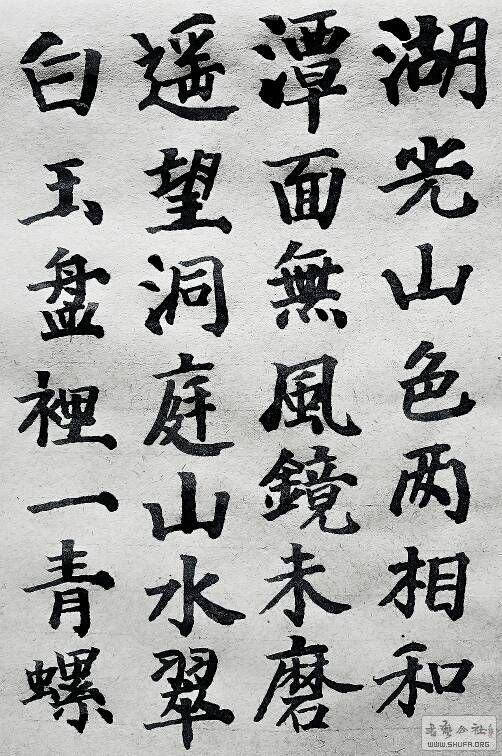 湖光山色两相和
潭面無風鏡未磨
遥望洞庭山水翠
白玉盤裡一青螺
WWW.SHUFA.ORG